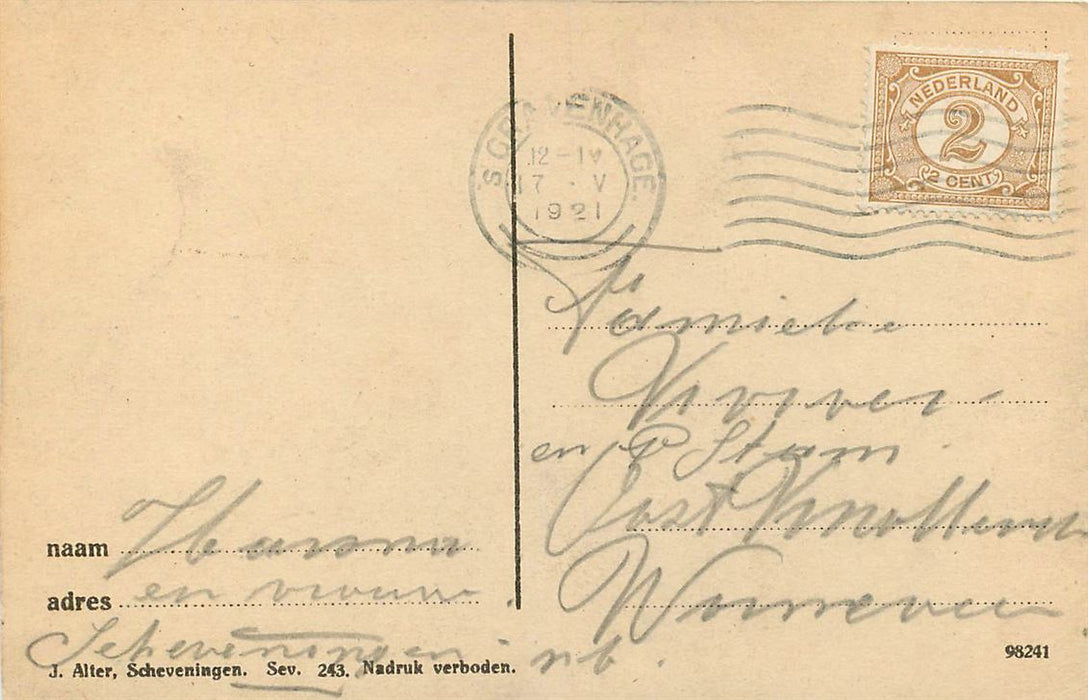 NEDERLAND
2
2 CENT
'S GRAVENHAGE.
12-1V
17 · V
1921
Familie
en P Stam.
Oost Knollendam
Wormeveer
naam
adres en vrouw.
Scheveningen
J. Alter, Scheveningen. Sev. 243. Nadruk verboden.
98241